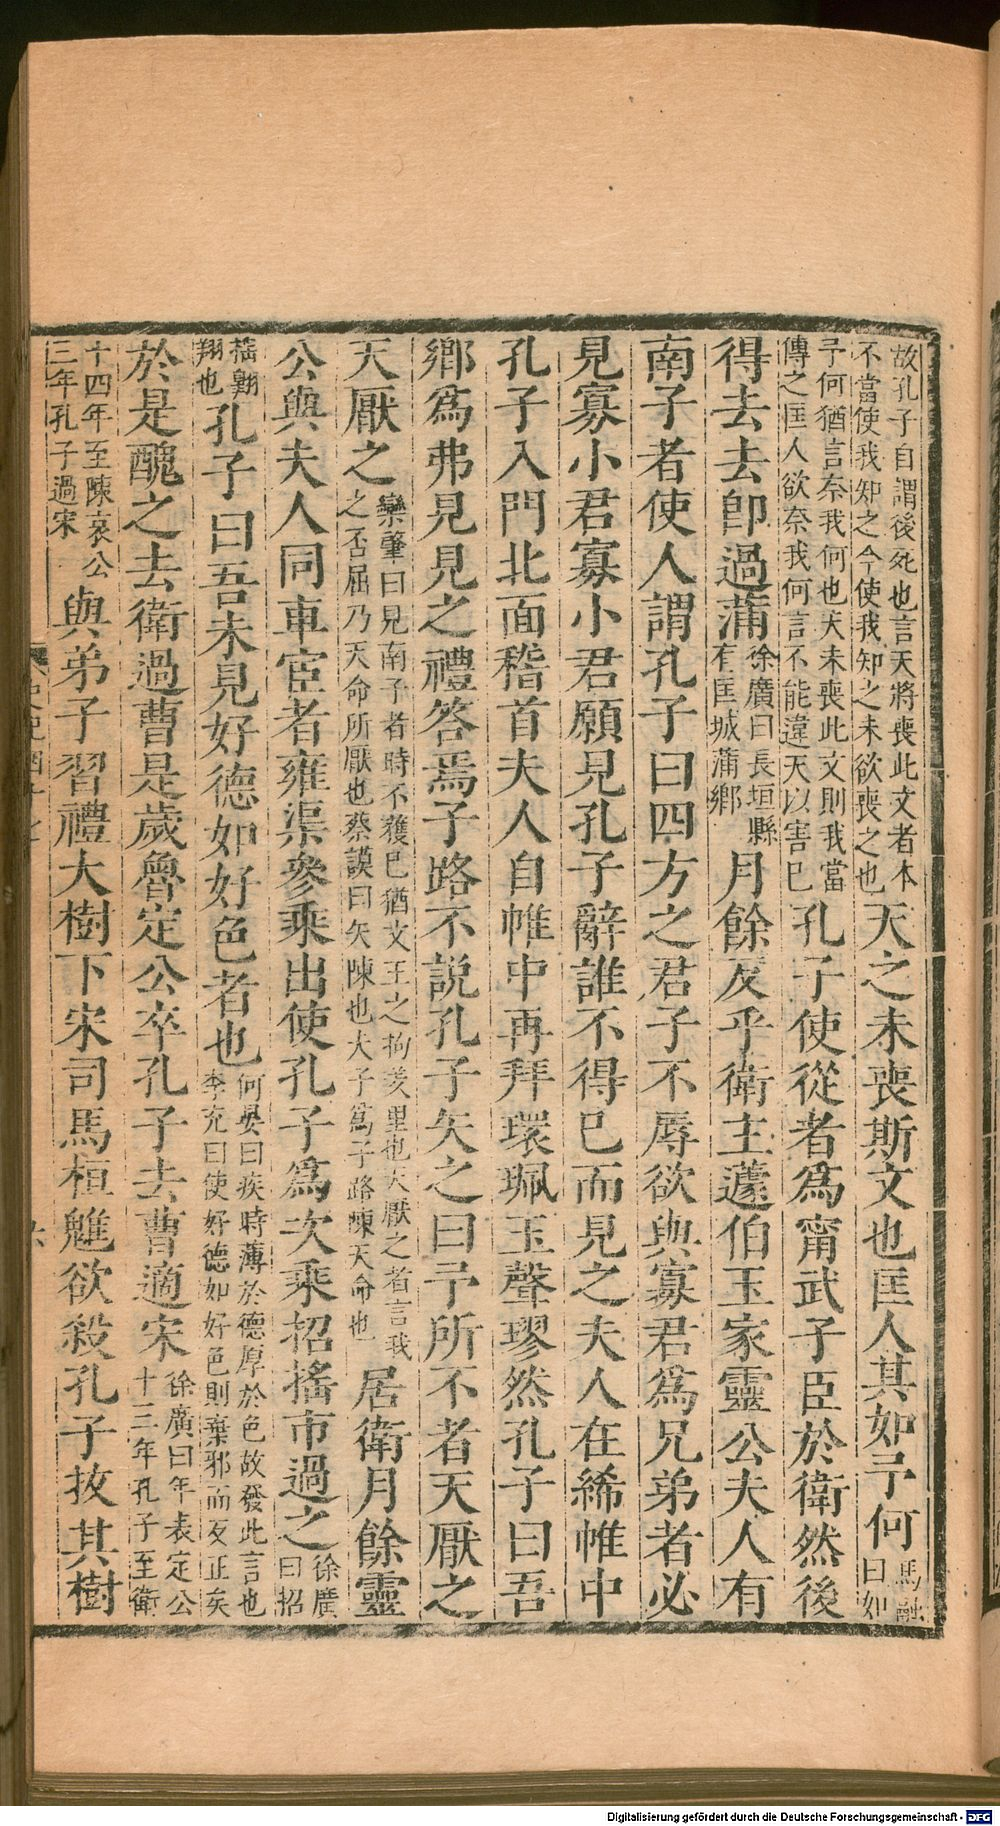 故孔子自謂後死也言天將喪此文者本不當使我知之今使我知之未欲喪之也天之未喪斯文也匡人其如予何馬融曰如
予何猶言奈我何也天未喪此文則我當傳之匡人欲奈我何言不能違天以害已孔子使從者爲甯武子臣於衛然後
得去去卽過蒲徐廣曰長垣縣有匡城蒲鄉月餘反乎衛主蘧伯玉家靈公夫人有
南子者使人謂孔子曰四方之君子不辱欲與寡君爲兄弟者必
見寡小君寡小君願見孔子辭謝不得已而見之夫人在絺帷中
孔子入門北面稽首夫人自帷中再拜環珮玉聲璆然孔子曰吾
鄉爲弗見見之禮答焉子路不說孔子矢之曰予所不者天厭之
天厭之欒肇曰見南子者時不獲已猶文王之拘羑里也天厭之者言我之否屈乃天命所厭也蔡謨曰矢陳也夫子爲子路陳天命也居衛月餘靈
公與夫人同車宦者雍渠參乘出使孔子爲次乘招搖市過之徐廣曰招
搖翺翔也孔子曰吾未見好德如好色者也何晏曰疾時薄於德厚於色故發此言也李充曰使好德如好色則棄邪而反正矣
於是醜之去衛過曹是歲魯定公卒孔子去曹適宋徐廣曰年表定公十三年孔子至衛
十四年至陳哀公三年孔子過宋與弟子習禮大樹下宋司馬桓魋欲殺孔子拔其樹
六
Digitalisierung gefördert durch die Deutsche Forschungsgemeinschaft - DFG